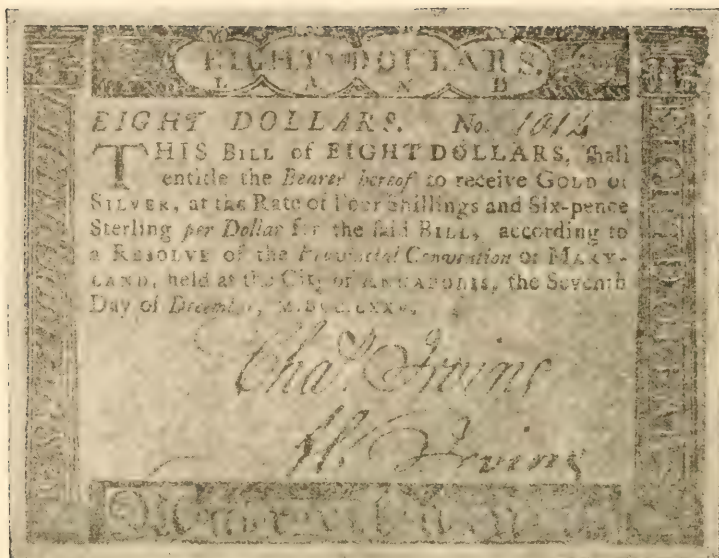 EIGHT DOLLARS.
EIGHT DOLLARS. No. 1014
THIS BILL of EIGHT DOLLARS, ſhall
entitle the Bearer hereof to receive GOLD or
SILVER, at the Rate of Four Shillings and Six-pence
Sterling per Dollar for the ſaid BILL, according to
a RESOLVE of the Provincial Convention of MARY-
LAND, held at the City of ANNAPOLIS, the Seventh
Day of December, M.DCC.LXXV.
Chas. Irvine
Irvine